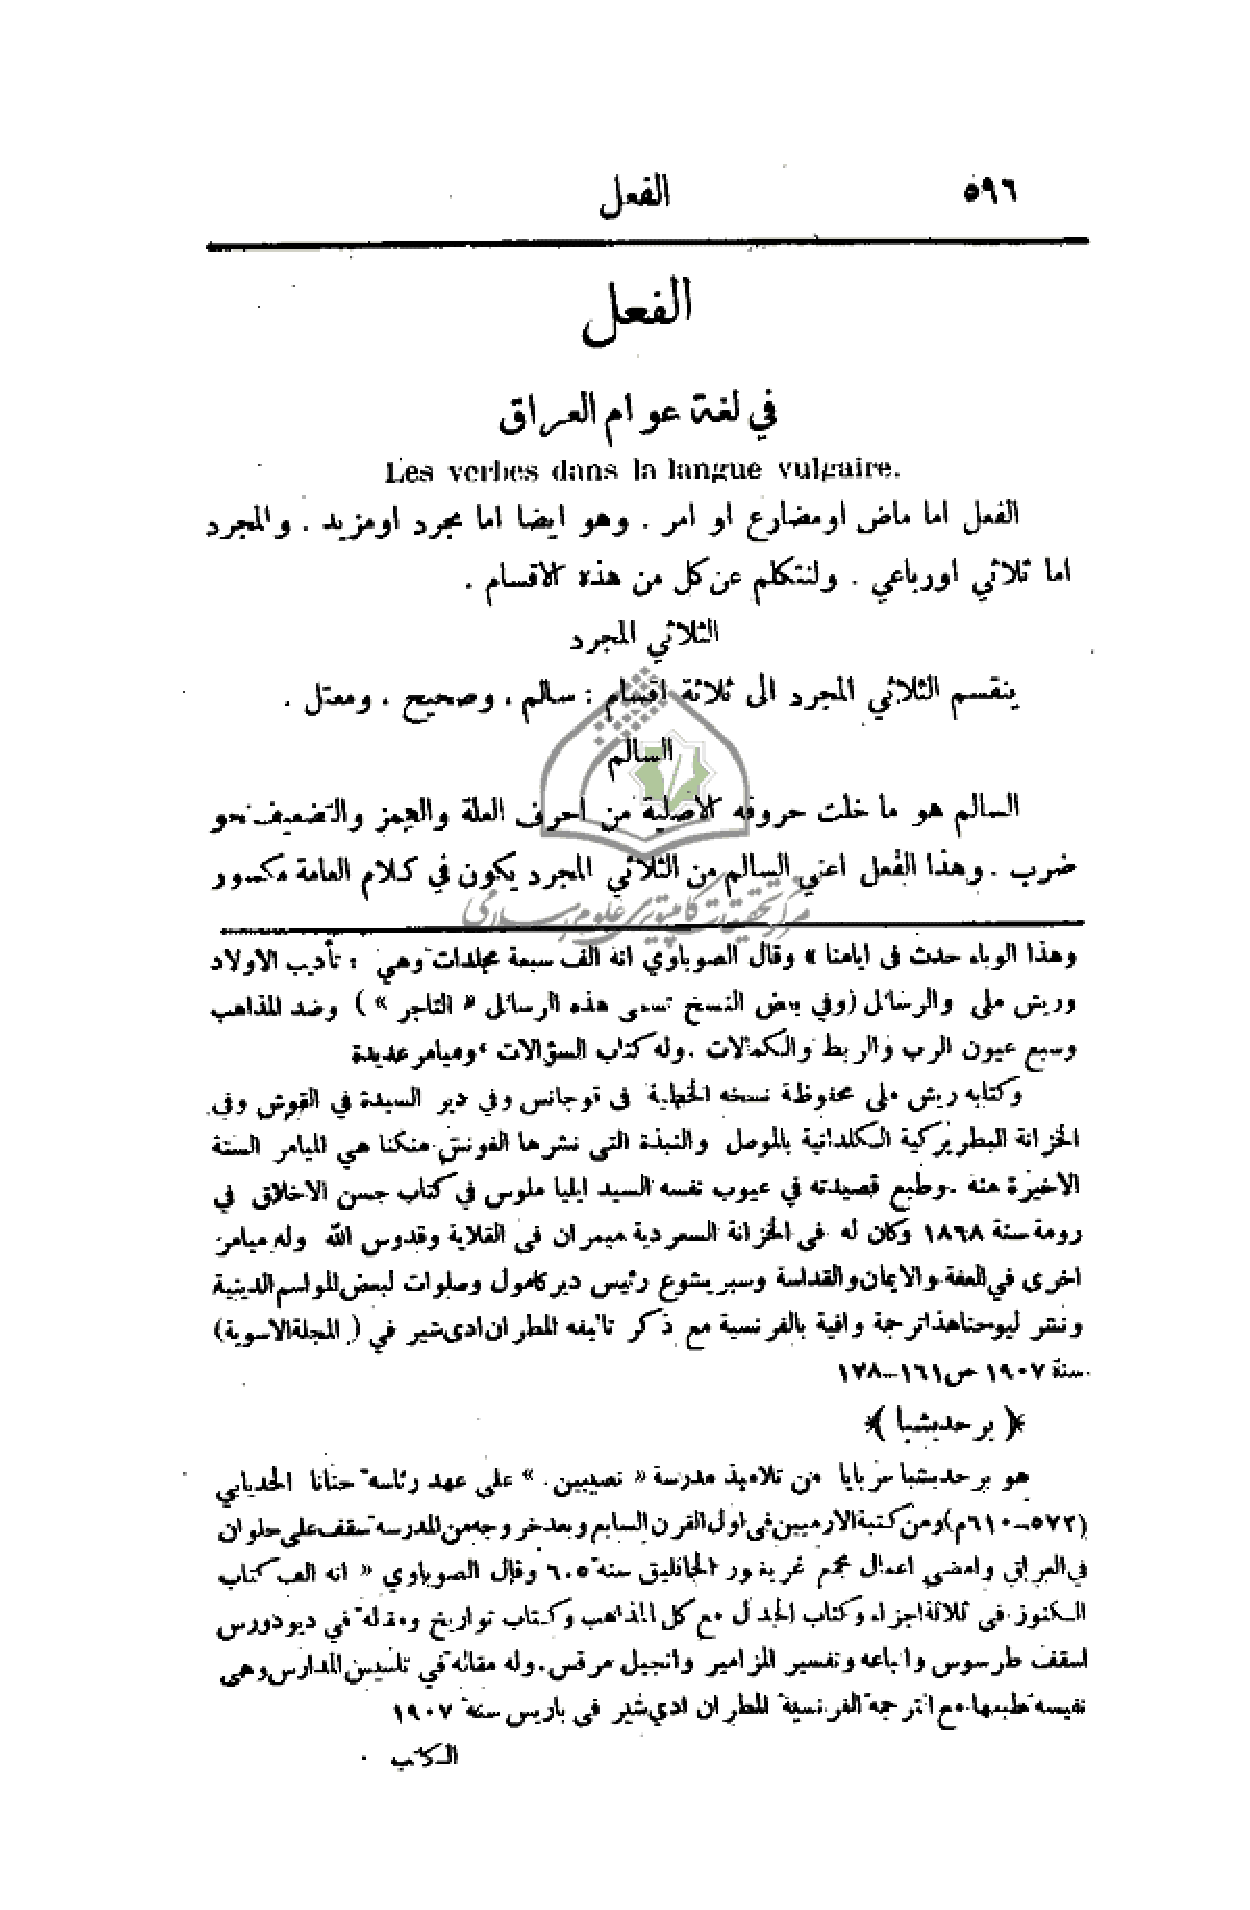 ٥٩٦ الفعل
الفعل
في لغة عوام العراق
Les verbes dans la langue vulgaire.
الفعل اما ماض او مضارع او امر . وهو ايضا اما مجرد او مزيد . والمجرد
اما ثلاثي او رباعي . ولنتكلم عن كل من هذه الاقسام .
الثلاثي المجرد
ينقسم الثلاثي المجرد الى ثلاثة اقسام : سالم ، وصحيح ، ومعتل .
السالم
السالم هو ما خلت حروفه الاصلية من احرف العلة والهمز والتضعيف نحو
ضرب . وهذا الفعل اعني السالم من الثلاثي المجرد يكون في كلام العامة مكسور
مركز تحقيقات كامپيوتری علوم اسلامی
وهذا الوباء حدث فى ايامنا » وقال الصوباوي انه الف سبعة مجلدات وهي : تأديب الاولاد
وريش ملى والرسائل (وفي بعض النسخ تسمى هذه الرسائل « التاجر » ) وضد المذاهب
وسبع عيون الرب والربط والكمالات . وله كتاب السؤالات ، وميامر عديدة
وكتابه ريش ملى محفوظة نسخه الخطية فى قوجانس وفي دير السيدة في القوش وفى
الخزانة البطريركية الكلدانية بالموصل والنبذة التى نشرها الفونس منكنا هي الميامر الستة
الاخيرة منه . وطبع قصيدته في عيوب نفسه السيد ايليا ملوس في كتاب حسن الاخلاق في
رومة سنة ١٨٦٨ وكان له فى الخزانة السعردية ميمران فى القلاية وقدوس الله وله ميامر
اخرى في العفة والايمان والقداسة وسبريشوع رئيس دير كامول وصلوات لبعض المواسم الدينية
ونشر ليوحنا هذا ترجمة وافية بالفرنسية مع ذكر تآليفه المطران ادى شير في ( المجلة الاسوية)
سنة ١٩٠٧ ص١٦١-١٧٨
﴿ بر حدبشبا ﴾
هو بر حدبشبا عربايا من تلاميذ مدرسة « نصيبين . » على عهد رئاسة حنانا الحديابي
(٥٧٢-٦١٠م) ومن كتبة الارميين فى اول القرن السابع وبعد خروجه من المدرسة سقف على حلوان
في العراق وامضى اعمال مجمع غريغور الجاثليق سنة ٦٠٥ وقال الصوباوي « انه الف كتاب
الكنوز فى ثلاثة اجزاء وكتاب الجدال مع كل المذاهب وكتاب تواريخ ومقالة في ديودورس
اسقف طرسوس واتباعه وتفسير المزامير وانجيل مرقس . وله مقالة في تأسيس المدارس وهى
نفيسة طبعها مع الترجمة الفرنسية المطران ادي شير فى باريس سنة ١٩٠٧
الكتب .